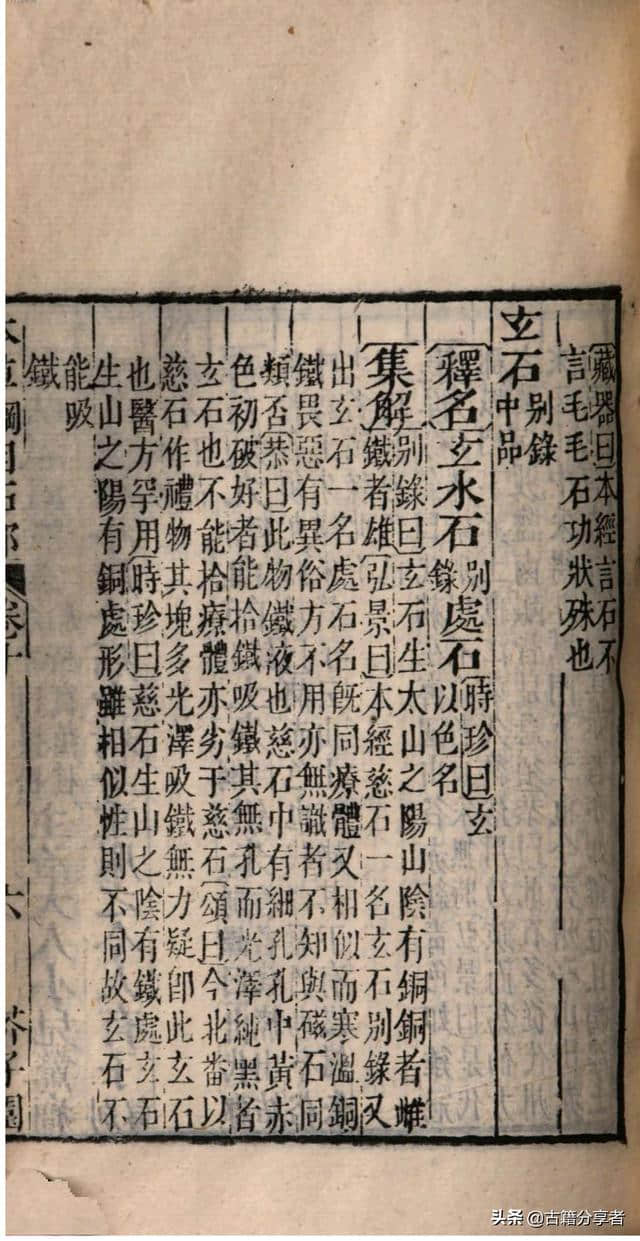 藏器曰本經言石不
言毛毛石功狀殊也
玄石別錄
中品
釋名玄水石別錄處石時珍曰玄
以色名
集解別錄曰玄石生太山之陽山陰有銅銅者雌
鐵者雄弘景曰本經慈石一名玄石別錄又
出玄石一名處石名既同療體又相似而寒溫銅
鐵畏惡有異俗方不用亦無識者不知與磁石同
類否恭曰此物鐵液也慈石中有細孔孔中黃赤
色初破好者能拾鐵吸鐵其無孔而光澤純黑者
玄石也不能拾療體亦劣于慈石頌曰今北番以
慈石作禮物其塊多光澤吸鐵無力疑卽此玄石
也醫方罕用時珍曰慈石生山之陰有鐵處玄石
生山之陽有銅處形雖相似性則不同故玄石不
能吸
鐵
本草綱目石部 卷十 六 芥子園
头条 @古籍分享者